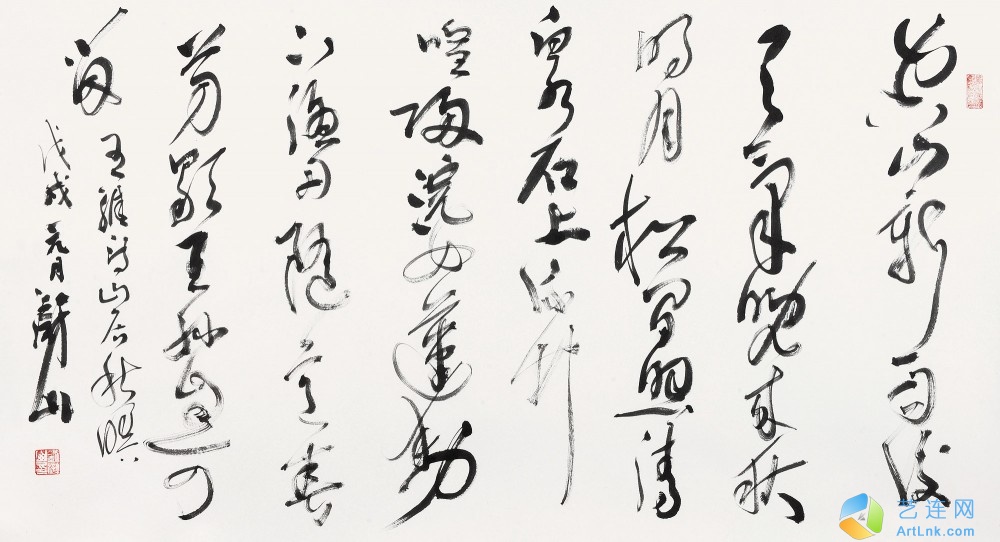 空山新雨後
天氣晚來秋
明月松間照清
泉石上流竹
喧歸浣女蓮動
下漁舟隨意春
芳歇王孫自可
留 王維詩山居秋暝
戊戌元月 山
艺连网
ArtLnk.com